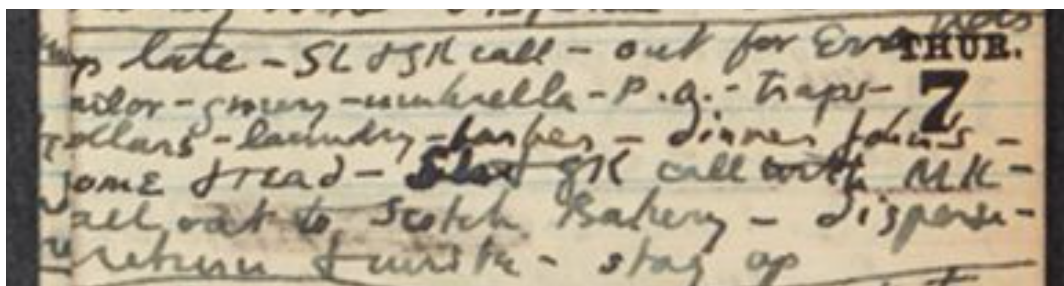 up late - SL & GK call - out for Errands
THUR.
tailor - grocery - umbrella - P.O. - traps -
7
collars - laundry - barber - dinner John's -
home & read - SL & GK call with MK -
all out to Scotch Bakery - disperse -
return & write - stay up